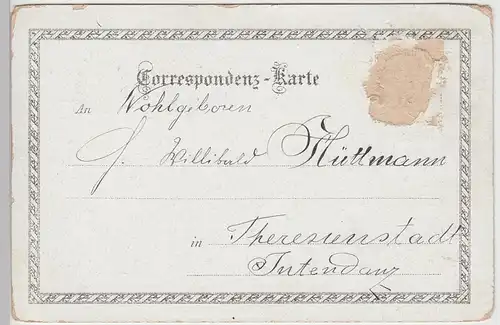 Correspondenz-Karte
An Wohlgeboren
H. Willibald Hüttmann
in Theresienstadt
Intendanz